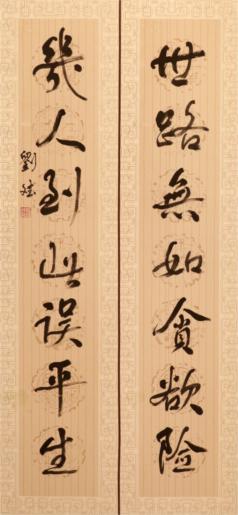 世路無如貪欲险
幾人到此误平生
劉斌